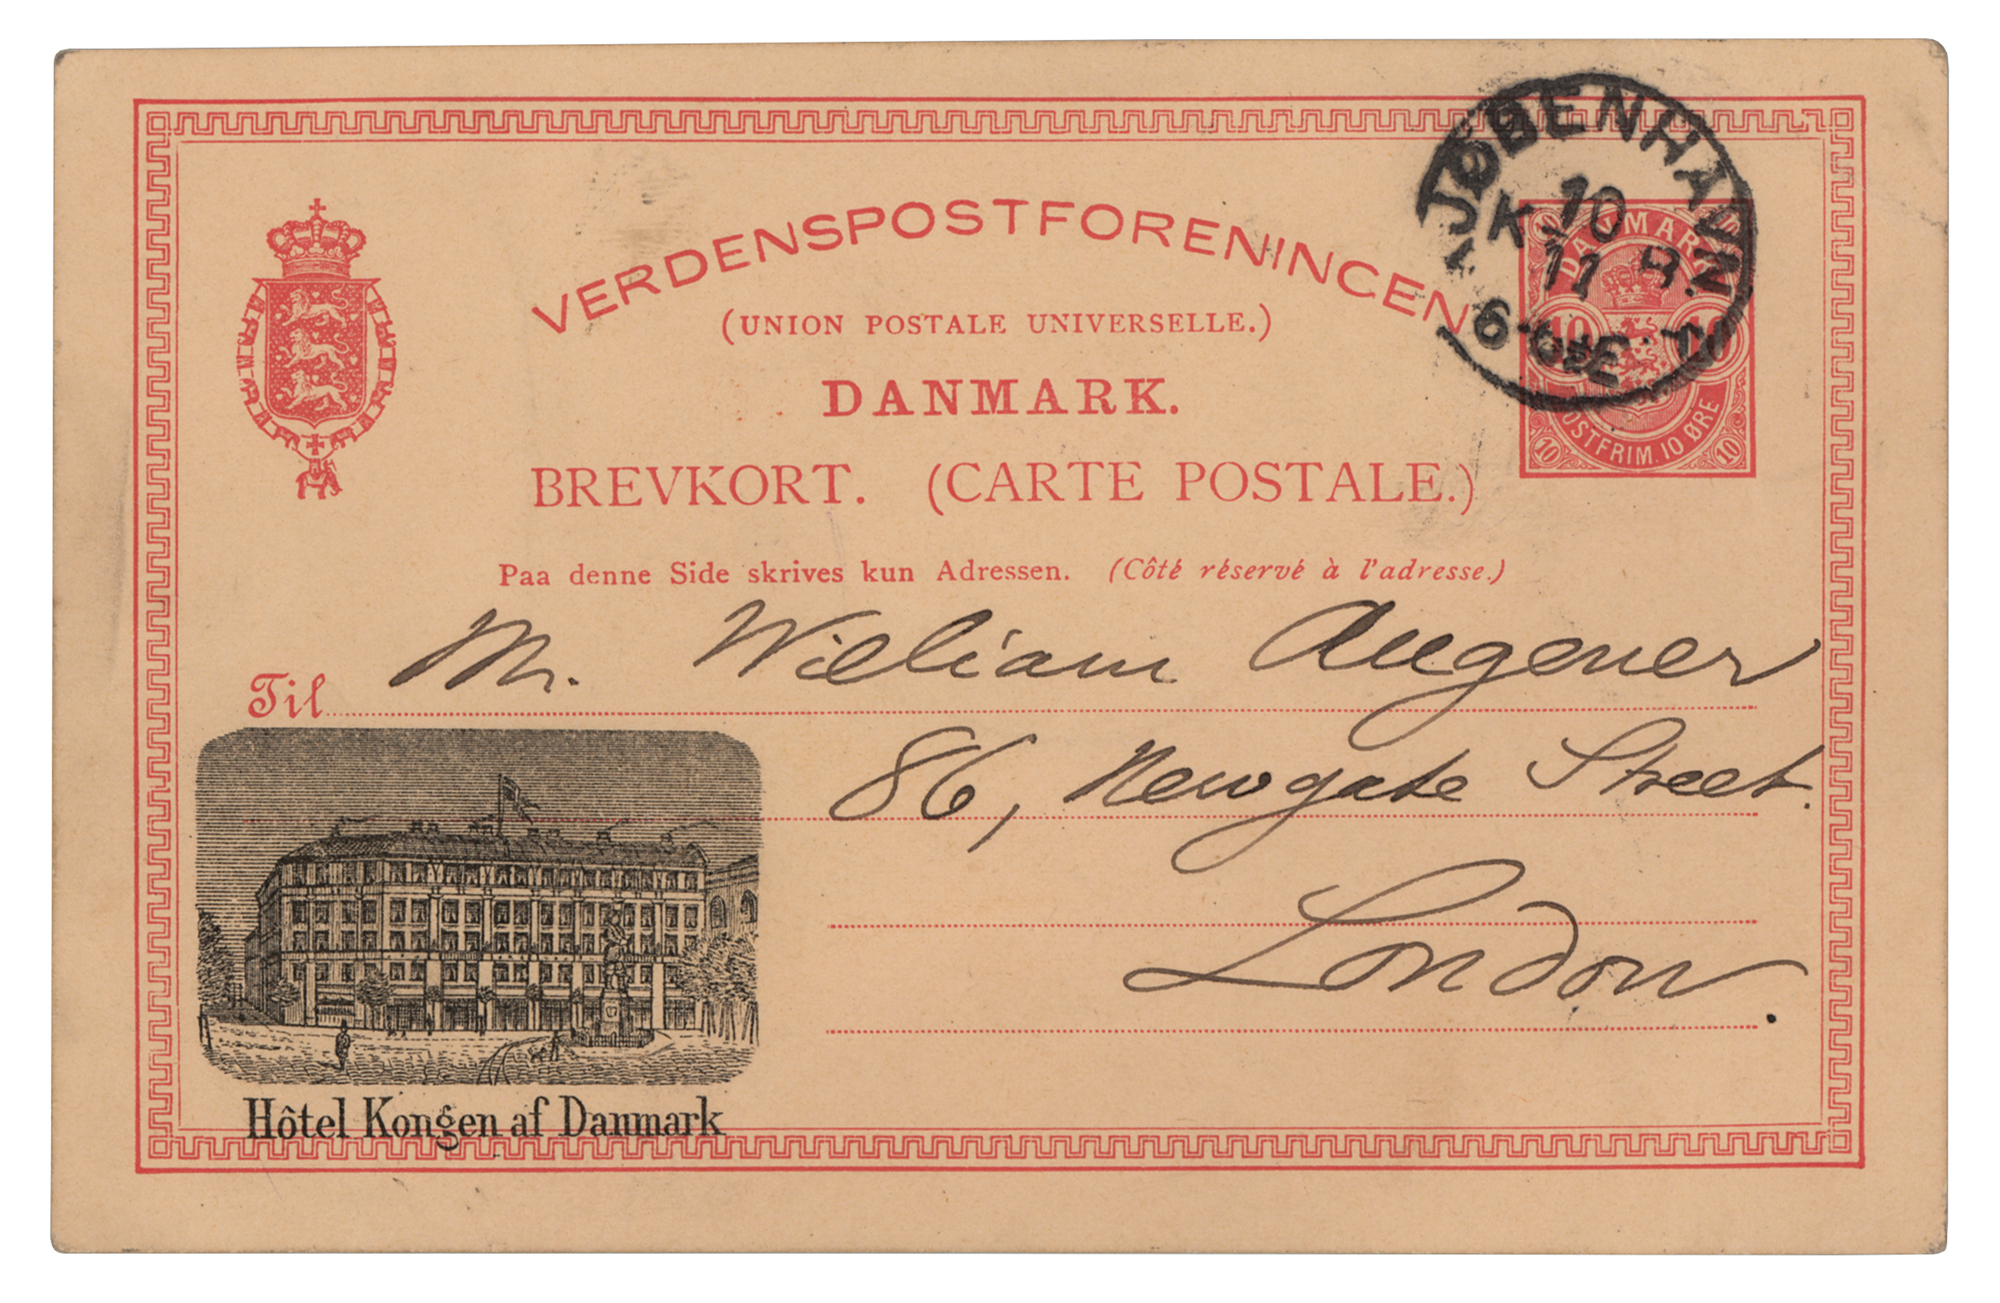 VERDENSPOSTFORENINGEN
(UNION POSTALE UNIVERSELLE.)
DANMARK.
BREVKORT. (CARTE POSTALE.)
KJØBENHAVN
K 10 B.
11
DANMARK
10 10
POSTFRIM. 10 ØRE
10 10
Paa denne Side skrives kun Adressen. (Côté réservé à l'adresse.)
Til Mr. William Augener
86, Newgate Street.
London.
Hôtel Kongen af Danmark